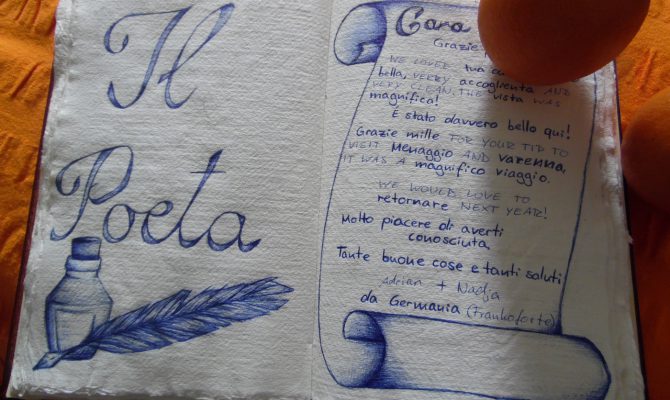 Il
Poeta
Cara
Grazie
WE LOVED tua
bella, VERRY accoglienta AND
VERY CLEAN, THE vista WAS
magnifica!
È stato davvero bello qui!
Grazie mille FOR YOUR TIP TO
VISIT Menaggio AND varenna,
IT WAS A magnifico viaggio.
WE WOULD LOVE TO
retornare NEXT YEAR!
Molto piacere di averti
conosciuta
Tante buone cose e tanti saluti
Adrian + Nadja
da Germania (Frankoforte)